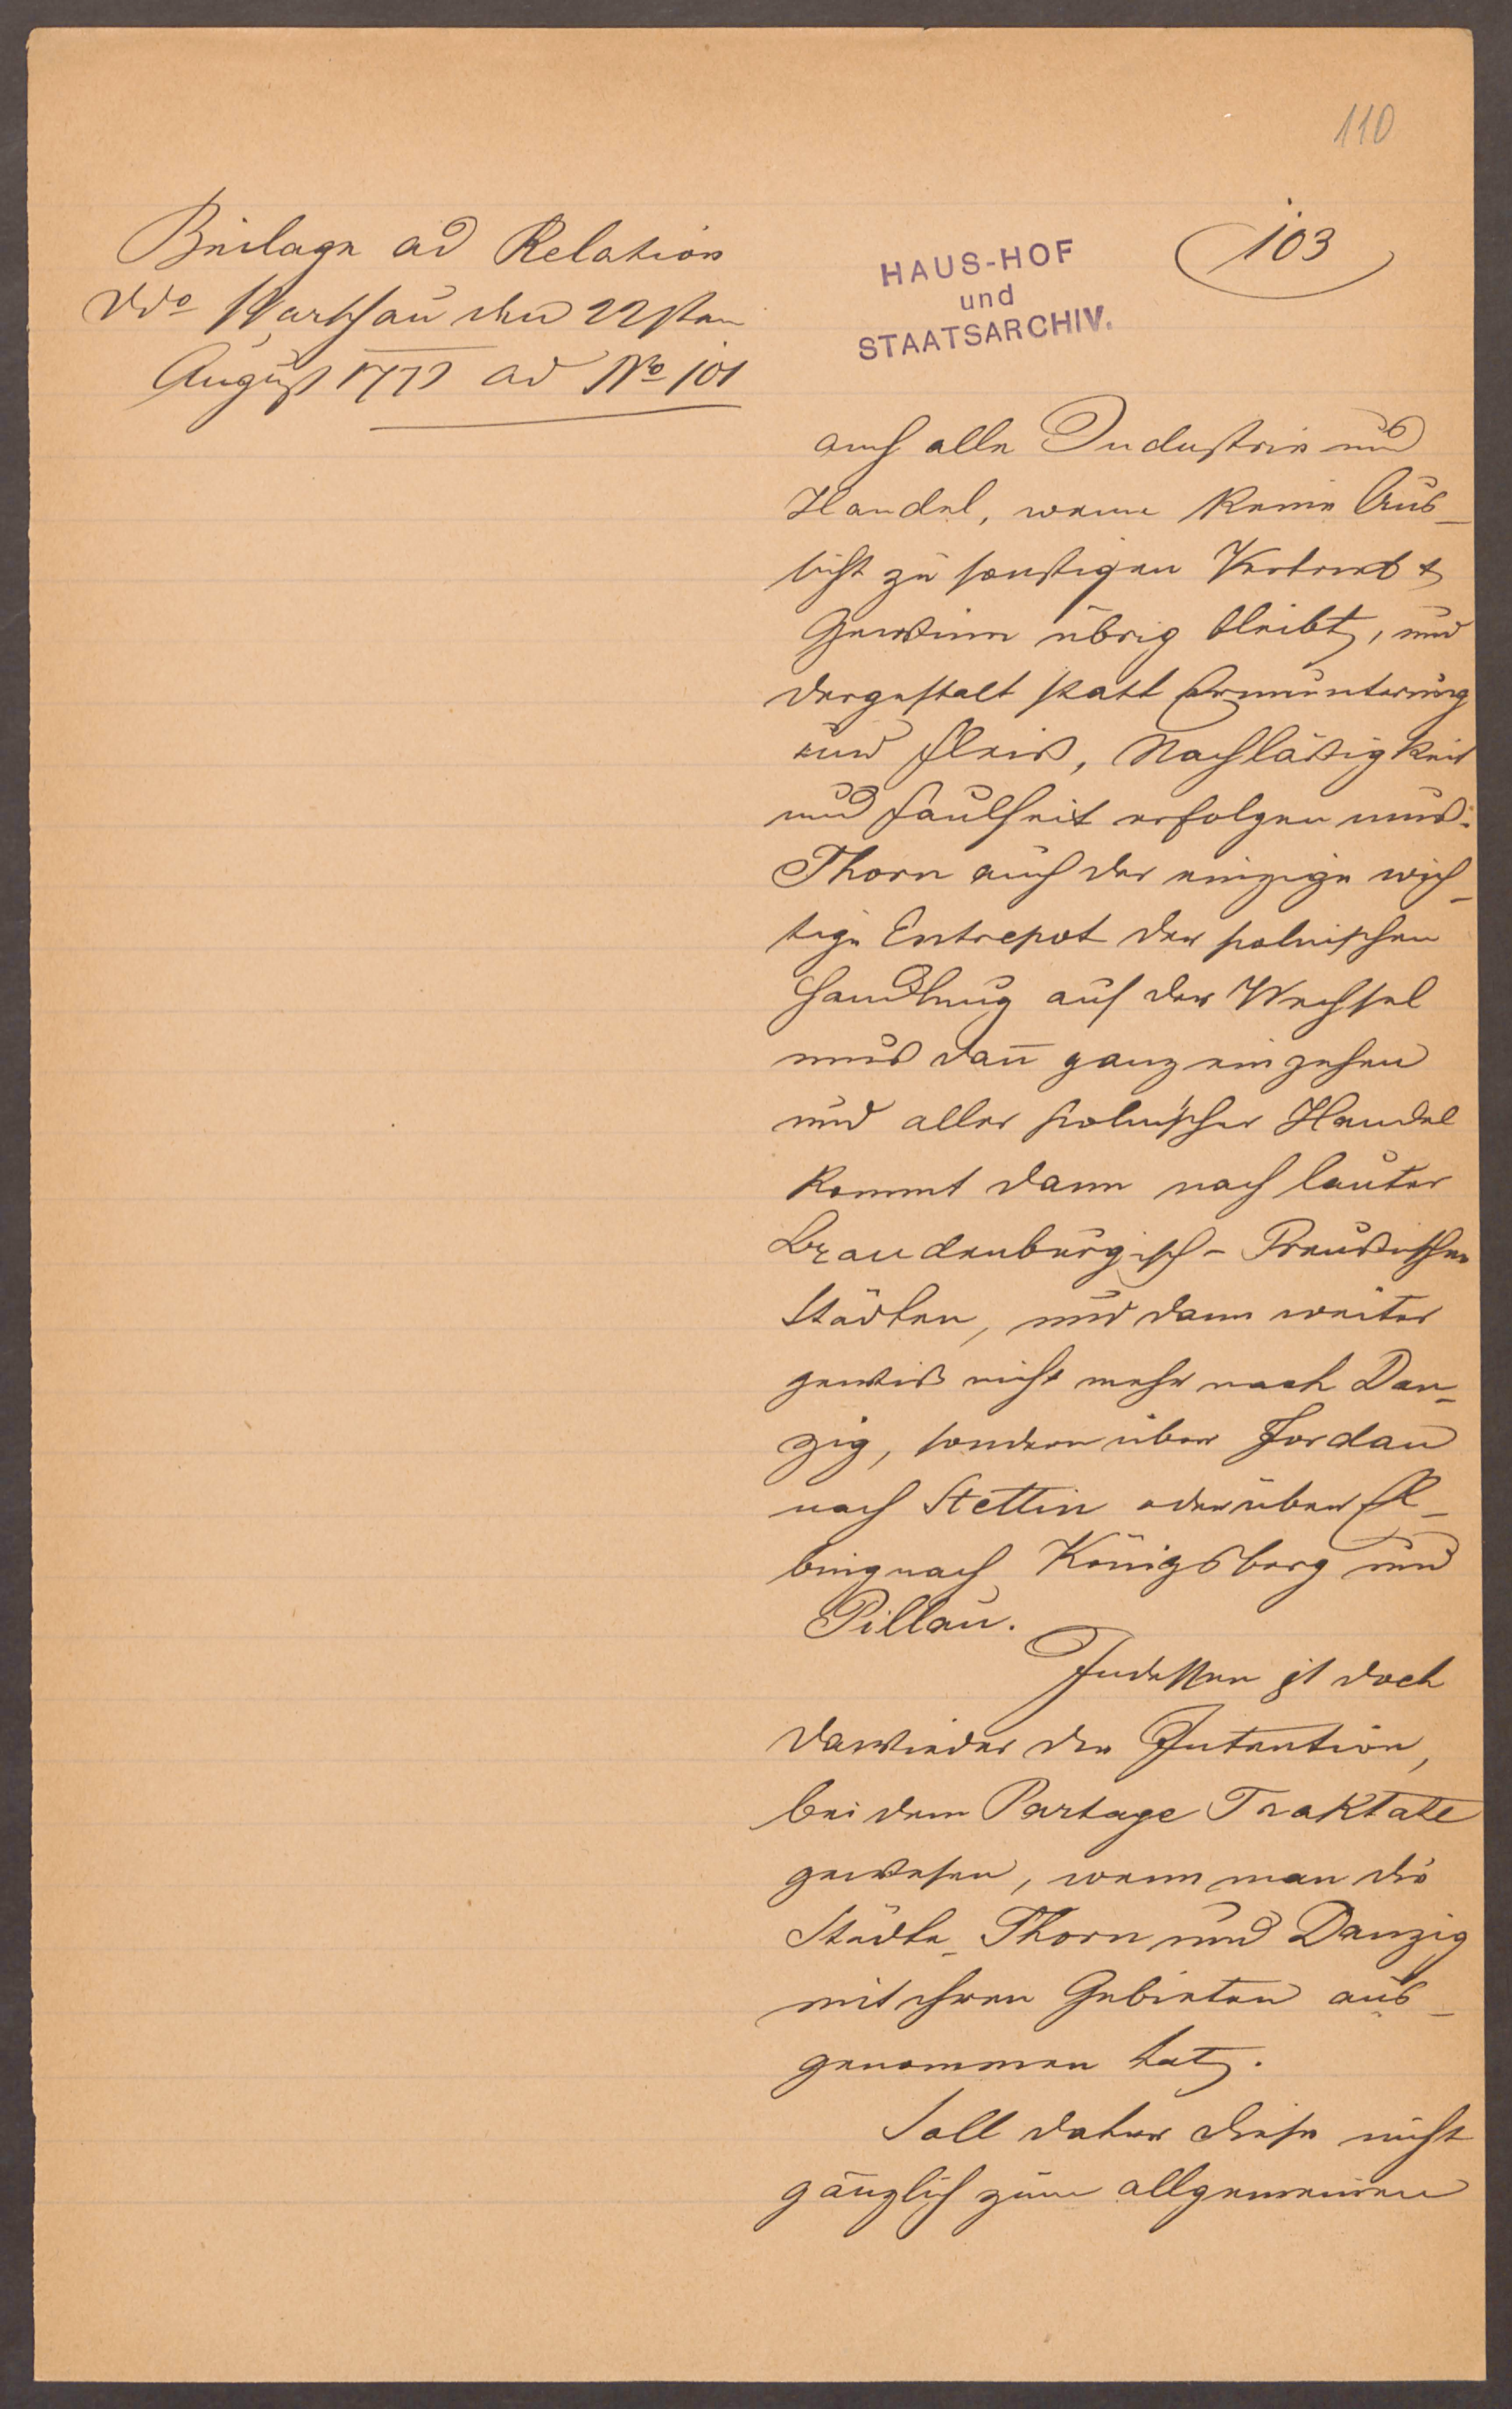 110
Beilage ad Relation
ddo Warschau den 22sten
August 177 ad No 101
103
HAUS-HOF
und
STAATSARCHIV.
auch alle Industrie und
Handel, wenn keine Aus-
sicht zu sonstigen Vertrieb &
Gewinn übrig bleibt, und
dergestalt statt Ermunterung
und Fleiß, Nachläßigkeit
und Faulheit erfolgen muß.
Thorn auch der einzige wich-
tige Entrepot der polnischen
Handlung auf der Weichsel
muß dan̄ ganz eingehen
und aller polnischer Handel
kommt dann nach lauter
Brandenburgisch-Preußischen
Städten, und dann weiter
gewiß nicht mehr nach Dan-
zig, sondern über Fordan
nach Stettin oder über El-
bing nach Königsberg und
Pillau.
Indessen ist doch
dawieder die Intention,
bei dem Partage Traktate
gewesen, wenn man die
Städte Thorn und Danzig
mit ihren Gebieten aus-
genommen hat.
Soll daher diese nicht
gänzlich zum allgemeinen